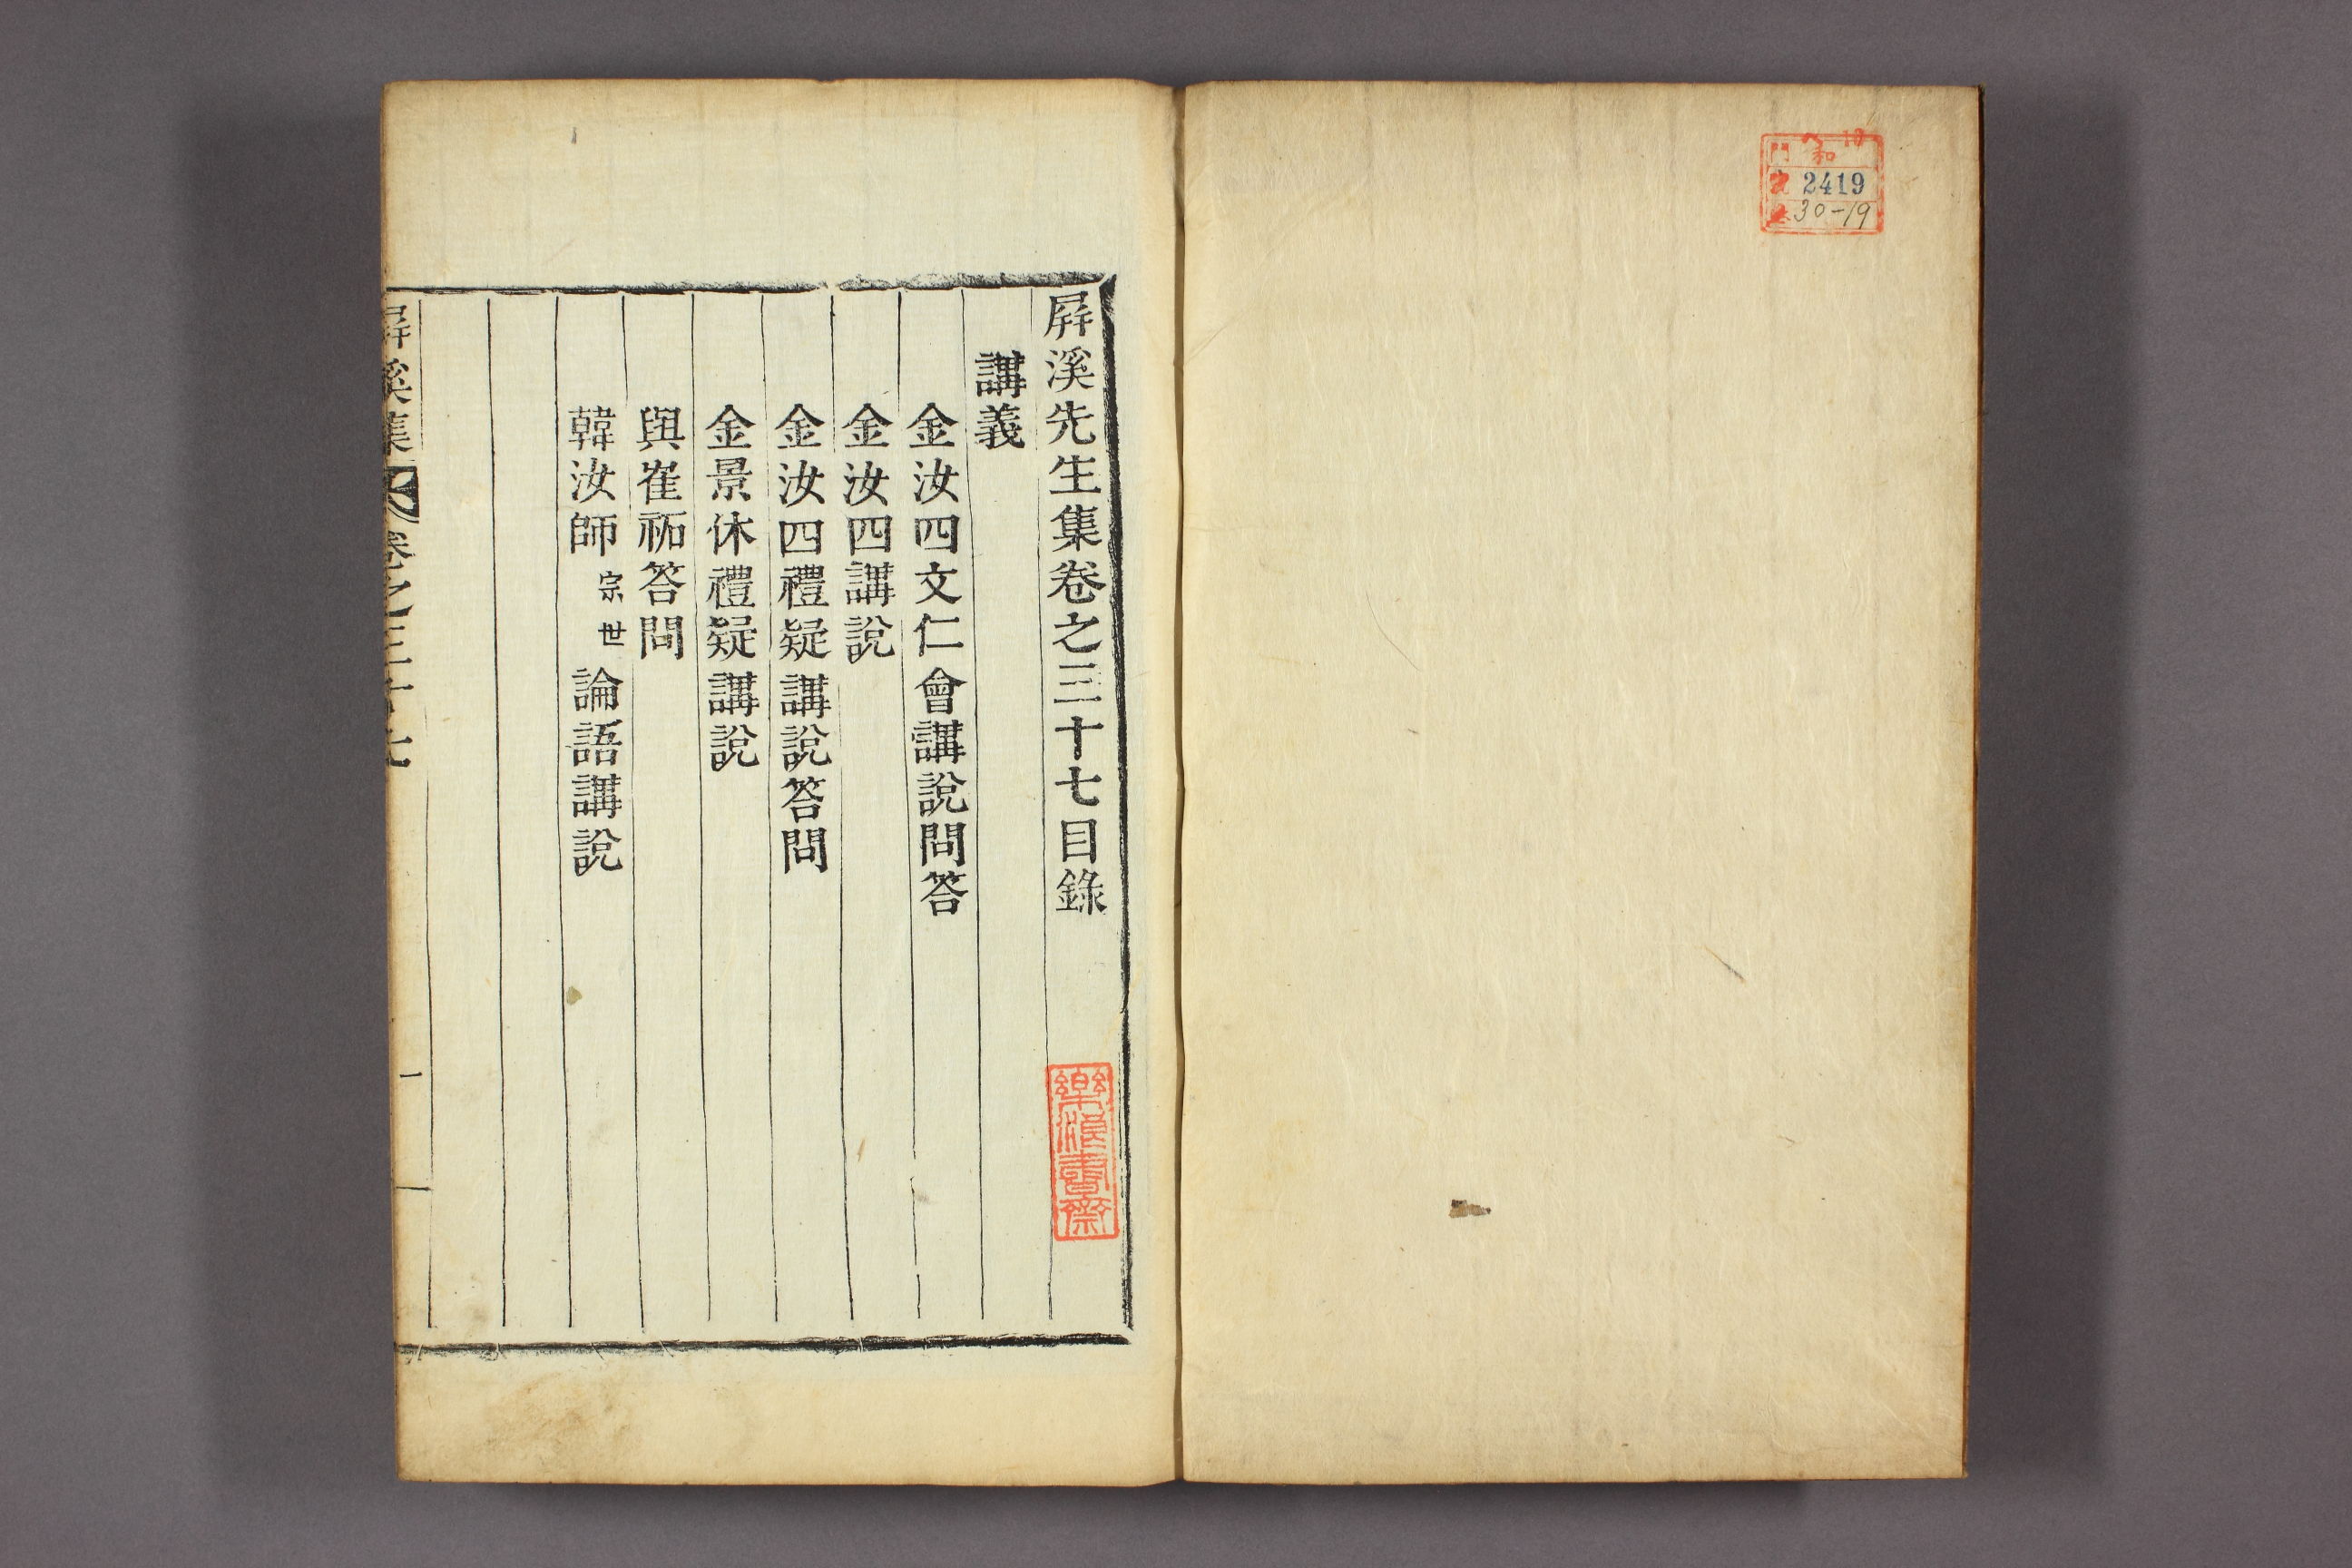 和
2419
30-19
屛溪先生集卷之三十七目錄
講義
金汝四文仁會講說問答
金汝四講說
金汝四禮疑講說答問
金景休禮疑講說
與崔祏答問
韓汝師宗世論語講說
屛溪集
卷之三十七
一
樂浪書齋